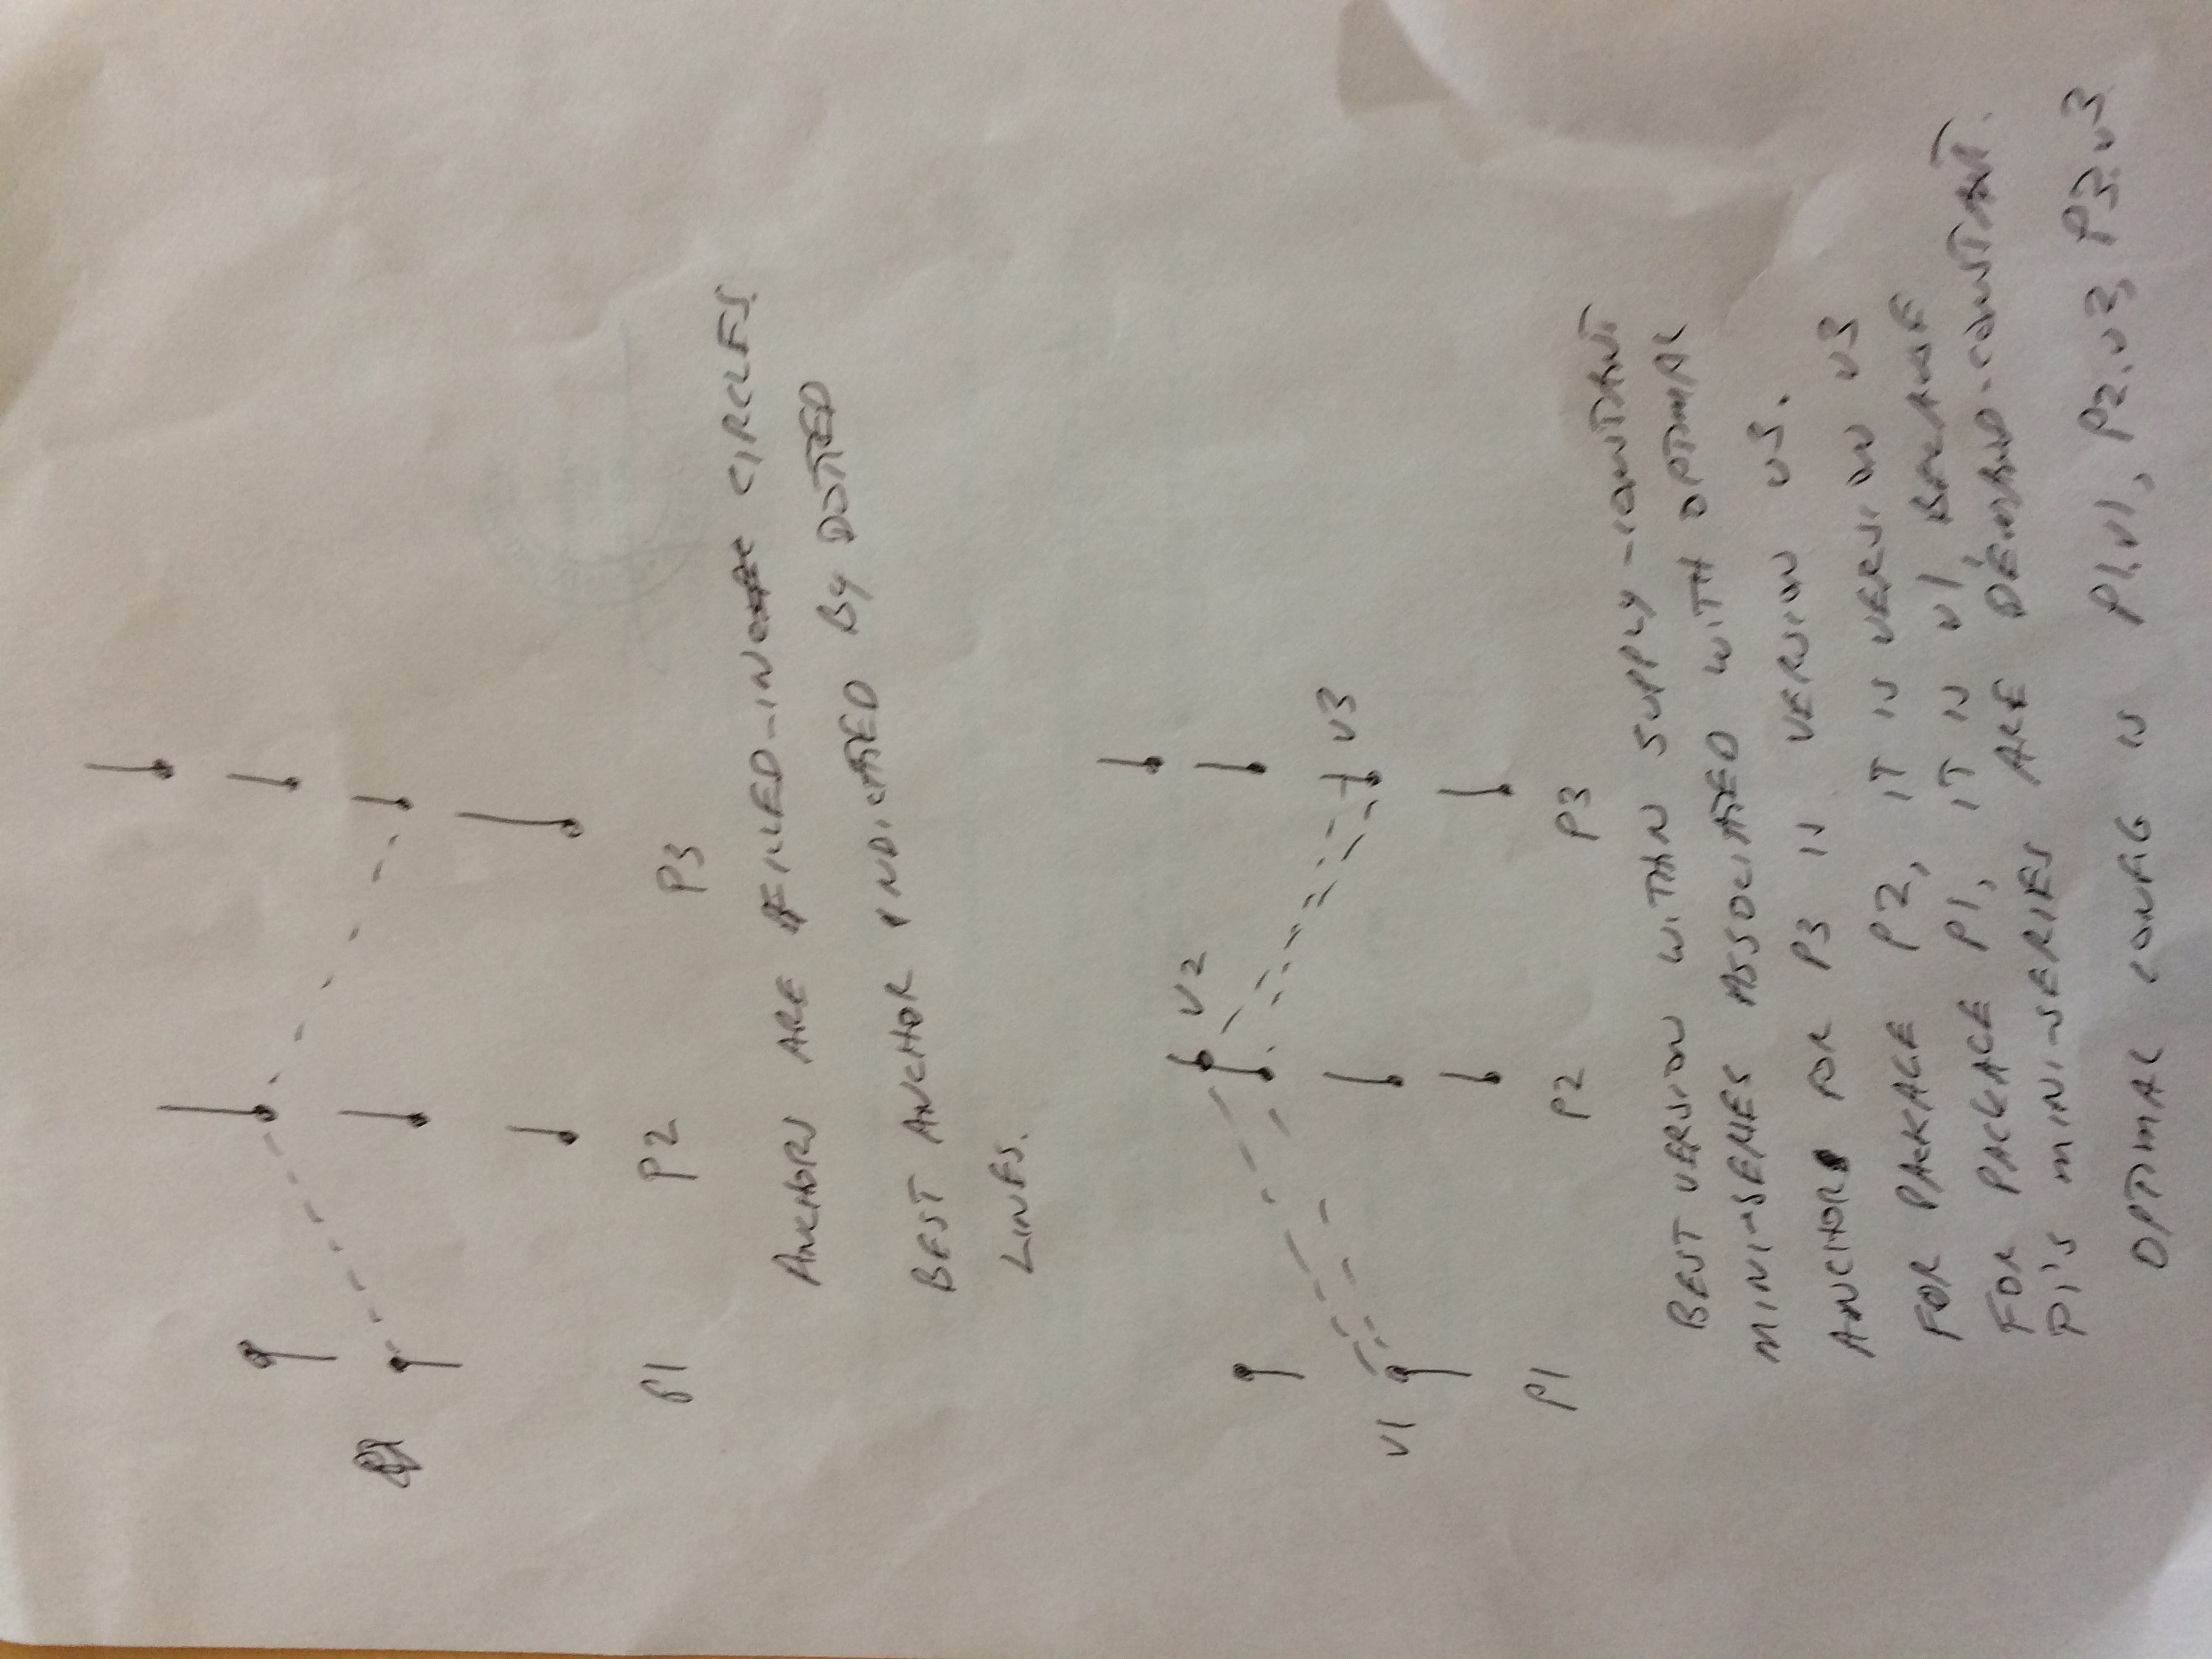 P1 P2 P3
ANCHORS ARE FILLED-IN CIRCLES.
BEST ANCHOR INDICATED BY DOTTED
LINES.
V2
V1 V3
P1 P2 P3
BEST VERSION WITHIN SUPPLY-CONSTANT
MINI-SERIES ASSOCIATED WITH OPTIMAL
ANCHOR FOR P3 IS VERSION V3.
FOR PACKAGE P2, IT IS VERSION V3
FOR PACKAGE P1, IT IS V1 BECAUSE
P1'S MINI-SERIES ARE DEMAND-CONSTANT.
OPTIMAL CONFIG IS P1.V1, P2.V3, P3.V3